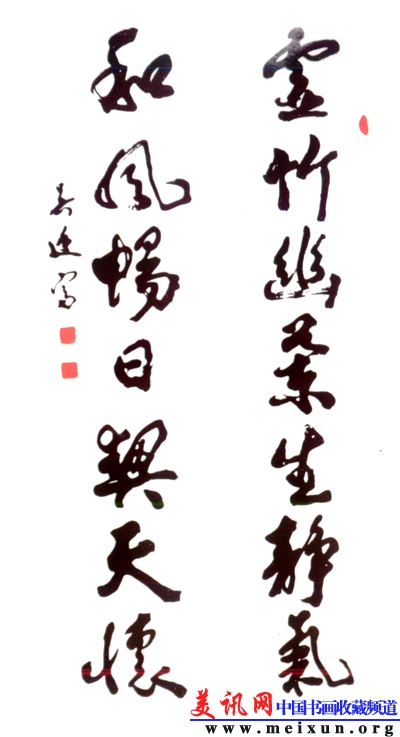 虛竹幽蘭生靜氣
和風暢日契天懷
寫
美讯网 中国书画收藏频道
www.meixun.org